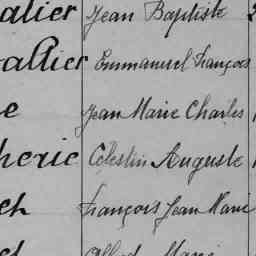 alier Jean Baptiste 2
allier Emmanuel François
e Jean Marie Charles
herie Célestin Auguste
ch François Jean Marie
Marie